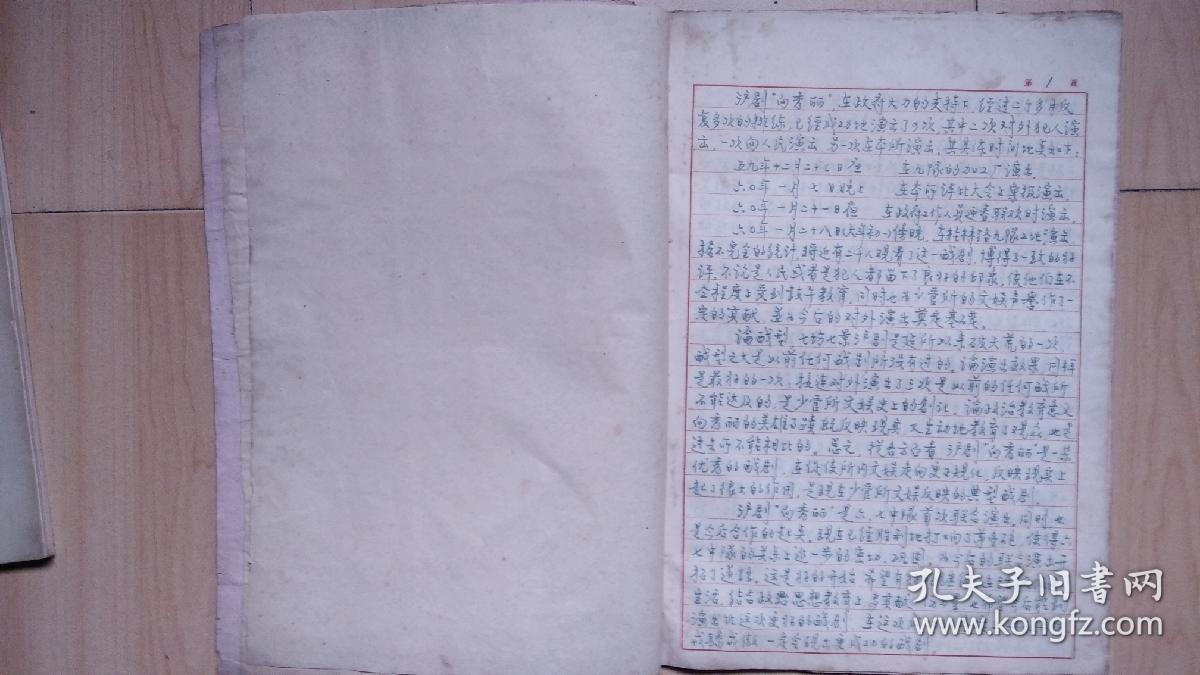 第 1 页
沪剧"向秀丽",在政府大力的支持下,经过二个多月反
复多次的排练,已经成功地演出了四次,其中二次对外犯人演
出,一次向人民演出,另一次在本所演出,其具体时间地点如下:
五九年十二月二十七日夜 在九队的加工厂演出
六〇年一月七日晚上 在本所评比大会上汇报演出
六〇年一月二十一日夜 在政府工作人员迎春联欢时演出
六〇年一月二十八日(大年初一)傍晚,在九队工地演出
据不完全的统计,将近有二千人观看了这一戏剧,博得了一致的好
评,不论是人民或者是犯人都留下了良好的印象,使他们在不
同程度上受到教育,同时也为少管所的文娱声誉作了一
定的贡献,并为今后的对外演出奠定基础。
论戏型,七场七景沪剧是建所以来破天荒的一次
戏型之大是以前任何戏剧所没有过的。论演出效果,同样
是最好的一次,接连对外演出了三次是以前的任何戏所
不能达及的,是少管所文娱史上的创举。论政治教育意义
向秀丽的英雄事迹既反映现实又生动地教育了观众,也是
过去所不能相比的。总之,从各方面看,沪剧"向秀丽"是一景
优秀的戏剧,在促使所内文娱走向更正规化,反映现实上
起了很大的作用,是现在少管所文娱反映的典型戏剧。
沪剧"向秀丽"是六、七中队首次联合演出,同时也
是今后合作的起点。现在已经胜利地打响了第一炮,使得六
七中队的关系上进一步的密切、巩固,为今后的联合演出开
拓了道路。这是好的开始,希望有
生活,结合政治思想教育上
演出比这次更好的戏剧,在这次
一定会现出更成功的戏剧。
孔夫子旧书网
www.kongfz.com